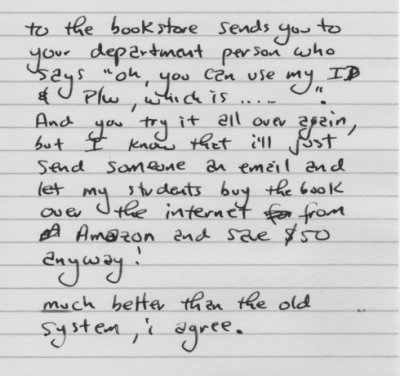 to the bookstore sends you to
your department person who
says "oh, you can use my ID
& PIN, which is ..... ".
And you try it all over again,
but I know that i'll just
send someone an email and
let my students buy the book
over the internet from
Amazon and save $50
anyway!
much better than the old
system, i agree.